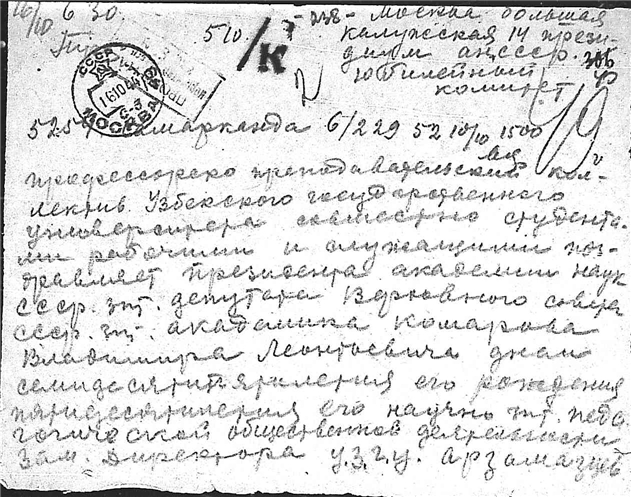 16/10 6 30.
510/К
Москва большая
калужская 14 прези-
диум ан.ссср. зпт
юбилейный
комитет
СССР МОСКВА 16 10 44
525 Самарканда 6/229 52 10/10 1500
профессорско преподавательский кол-
лектив Узбекского государственного
университета совместно студента-
ми рабочими и служащими поз-
дравляет президента академии наук
ссср. зпт. депутата Верховного совета
ссср. зпт. академика комарова
Владимира Леонтьевича днем
семидесятипятилетия его рождения
пятидесятилетия его научно зпт. педа-
гогической общественной деятельности
Зам. Директора у.з.г.у. арзамазцев